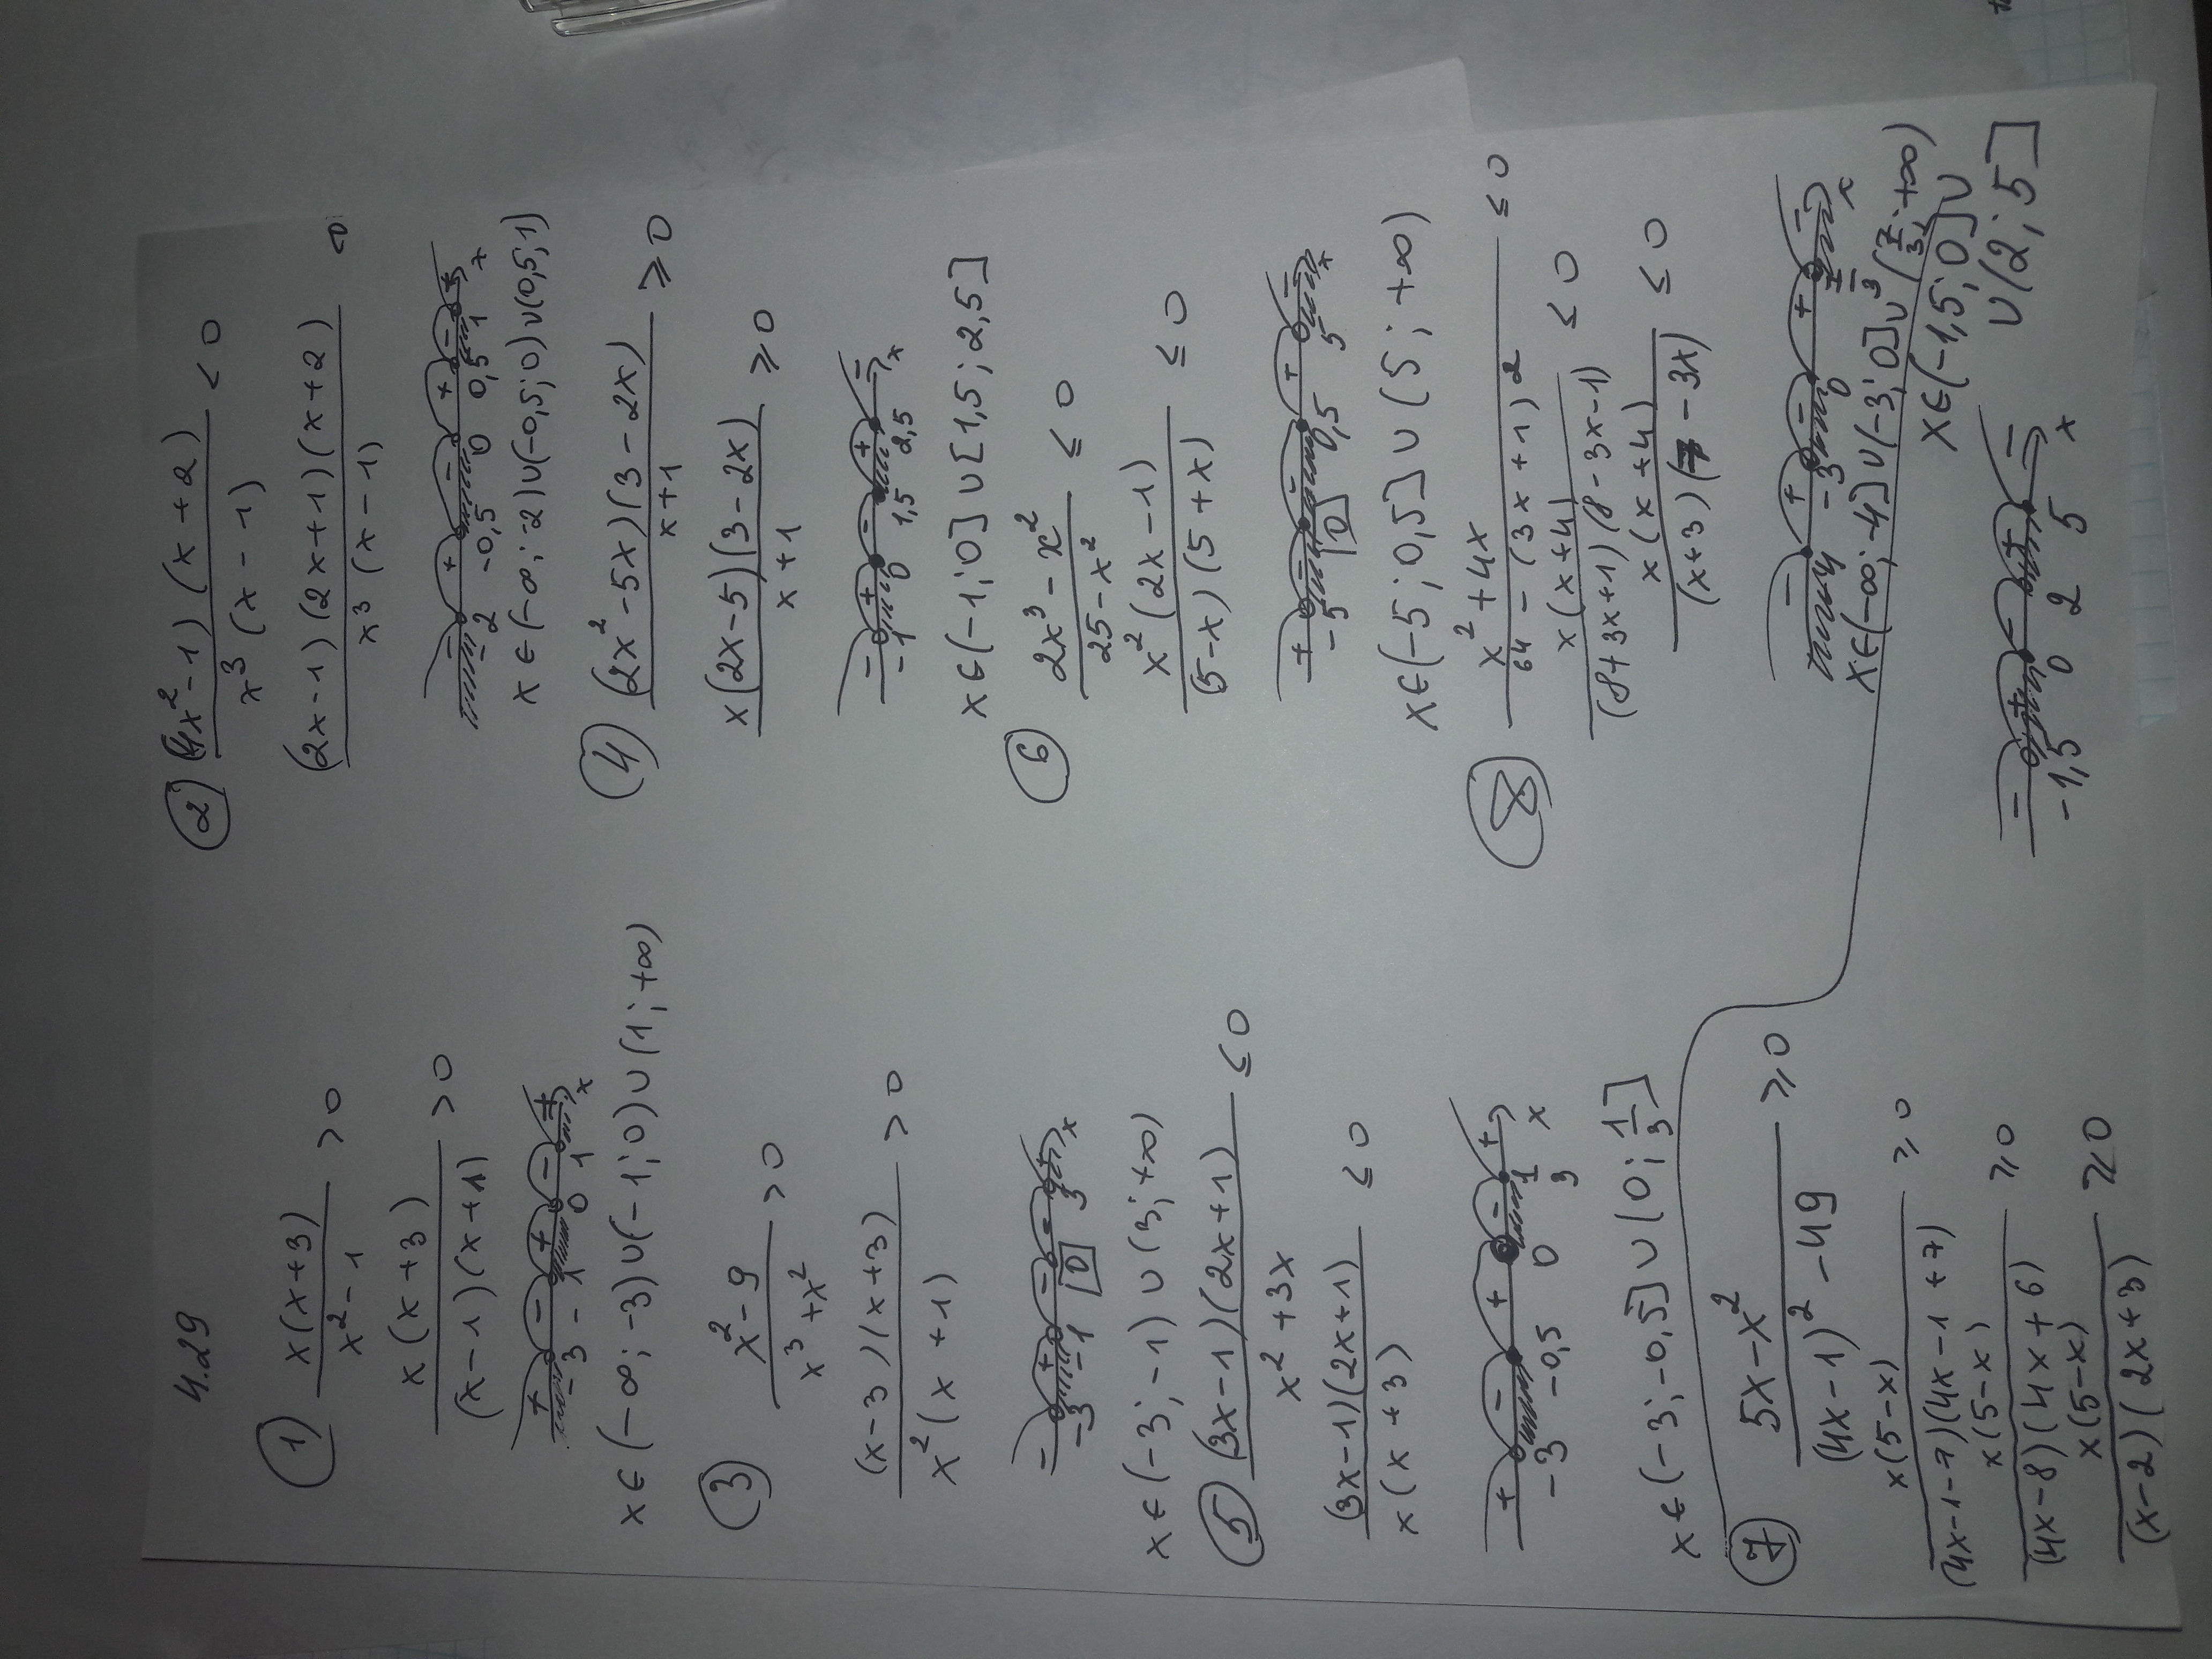 4.29
① x(x+3)
x² - 1
> 0
x(x+3)
(x-1)(x+1)
> 0
+ - + - +
-3 -1 0 1 x
x ∈ (-∞; -3) ∪ (-1; 0) ∪ (1; +∞)
③ x² - 9
x³ + x²
> 0
(x-3)(x+3)
x² (x+1)
> 0
- + - - +
-3 -1 0 3 x
x ∈ (-3; -1) ∪ (3; +∞)
⑤ (3x-1)(2x+1)
x² + 3x
≤ 0
(3x-1)(2x+1)
x(x+3)
≤ 0
+ - + - +
-3 -0,5 0 1/3 x
x ∈ (-3; -0,5] ∪ (0; 1/3]
⑦ 5x - x²
(4x-1)² - 49
≥ 0
x(5-x)
(4x-1-7)(4x-1+7)
≥ 0
x(5-x)
(4x-8)(4x+6)
≥ 0
x(5-x)
(x-2)(2x+3)
≥ 0
② (4x²-1)(x+2)
x³(x-1)
< 0
(2x-1)(2x+1)(x+2)
x³(x-1)
- + - + - +
-2 -0,5 0 0,5 1 x
x ∈ (-∞; -2) ∪ (-0,5; 0) ∪ (0,5; 1)
④ (2x²-5x)(3-2x)
x+1
≥ 0
x(2x-5)(3-2x)
x+1
≥ 0
- + - + -
-1 0 1,5 2,5 x
x ∈ (-1; 0] ∪ [1,5; 2,5]
⑥ 2x³ - x²
25 - x²
≤ 0
x²(2x-1)
(5-x)(5+x)
≤ 0
+ - - + -
-5 0 0,5 5 x
x ∈ (-5; 0,5] ∪ (5; +∞)
⑧ x² + 4x
64 - (3x+1)²
≤ 0
x(x+4)
(8+3x+1)(8-3x-1)
≤ 0
x(x+4)
(x+3)(7-3x)
≤ 0
- + - + -
-3 0 7/3 x
x ∈ (-∞; -4] ∪ (-3; 0] ∪ (7/3; +∞)
x ∈ (-1,5; 0] ∪
∪ (2; 5]
- + - + -
-1,5 0 2 5 x